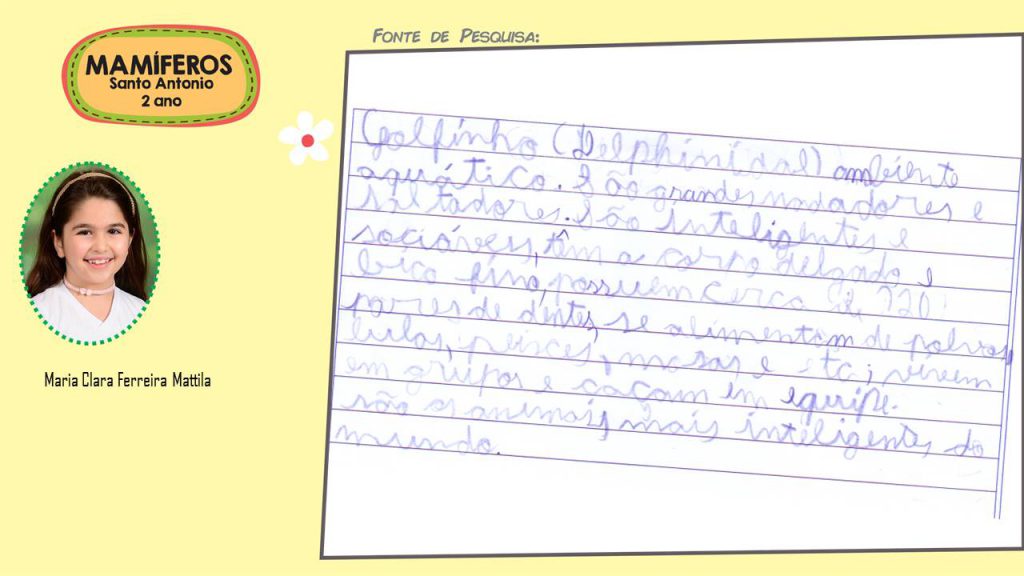 MAMÍFEROS
Santo Antonio
2 ano
Maria Clara Ferreira Mattila
FONTE DE PESQUISA:
Golfinho (Delphinidal) ambiente
aquático. São grandes nadadores e
saltadores. São inteligentes e
sociáveis, têm o corpo delgado e
bico fino, possuem cerca de 120
pares de dentes, se alimentam de polvos,
lulas, peixes, e etc; vivem
em grupos e caçam em equipe.
são os animais mais inteligentes do
mundo.